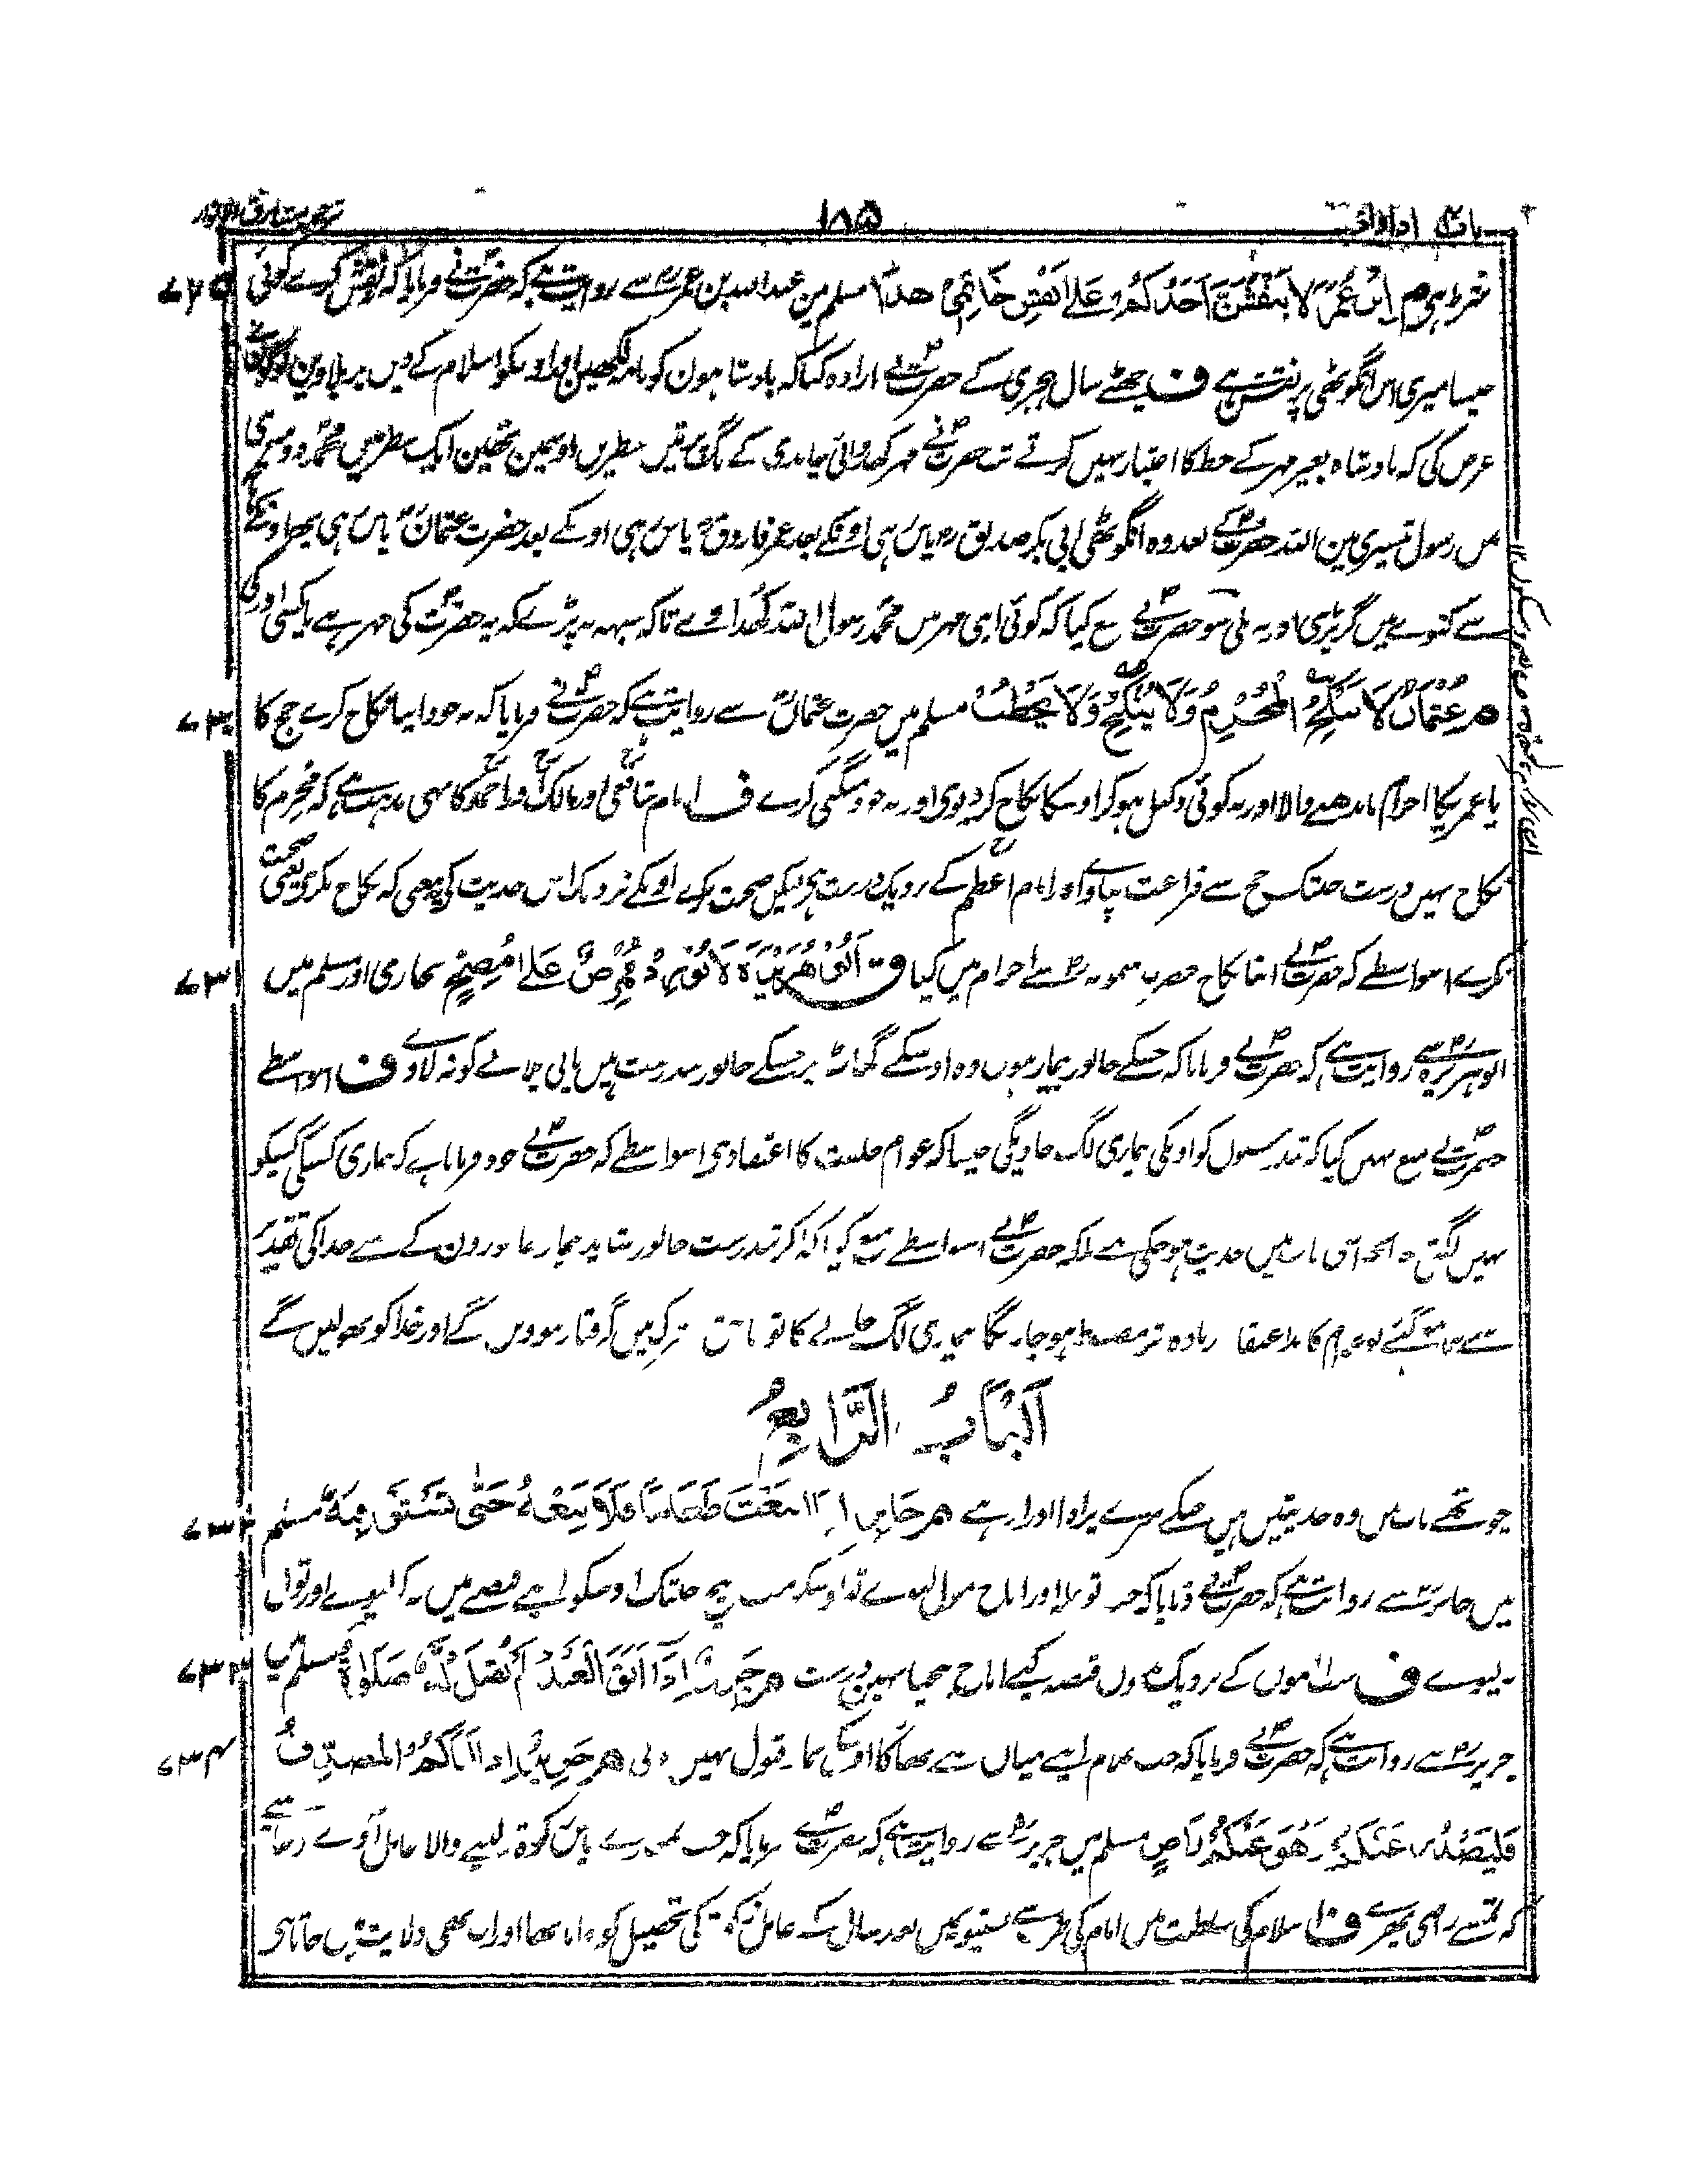 باب ۴ اذا واذا ۱۸۵ ترجمہ مشارق الانوار
شرط ہی م ابن عمر لا ینقش احدکم علی نقش خاتمی ھذا مسلم مین عبد اللہ بن عمر سے روایت ہے کہ حضرت نے فرمایا کہ نہ نقش کرے کوئی ۷۲۹
جیسا میری اس انگوٹھی پر نقش ہے ف چھٹے سال ہجری کے حضرت نے ارادہ کیا کہ بادشاہون کو نامہ لکھین اور اونکو اسلام کے دین پر بلاوین لوگون نے
عرض کی کہ بادشاہ بغیر مہر کے خط کا اعتبار نہیں کرتے تب حضرت نے مہر کھدوائی چاندی کے سطریں اوسمین تھین ایک سطر میں محمد دوسری
میں رسول تیسری مین اللہ حضرت کے بعد وہ انگوٹھی ابی بکر صدیق پاس رہی اونکے بعد عمر فاروق پاس رہی اونکے بعد حضرت عثمان پاس رہی پھر اونکے
سے کنوے میں گر پڑی اور نہ ملی سو حضرت نے منع کیا کہ کوئی اپنی مہر میں محمد رسول اللہ نہ کھداوے تاکہ شبہہ نہ پڑے کہ یہ حضرت کی مہر ہے یا کسی اور کی
م عثمان لا ینکح المحرم ولا ینکح ولا یخطب مسلم میں حضرت عثمان سے روایت ہے کہ حضرت نے فرمایا کہ نہ خود اپنا نکاح کرے حج کا ۷۳۰
یا عمریکا احرام باندھنے والا اور نہ کوئی وکیل ہو کر اوسکا نکاح کر دیوی اور نہ خود منگنی کرے ف امام شافعی اور مالک اور احمد کا یہی مذہب ہے کہ محرم کا
نکاح نہیں درست جبتک حج سے فراغت نپاوے اور امام اعظم کے نزدیک درست ہی لیکن صحبت نکرے اونکے نزدیک اس حدیث کے یہ معنی کہ نکاح نکرے یعنی صحبت
نکرے اسواسطے کہ حضرت نے اپنا نکاح حضرت میمونہ سے احرام میں کیا ق ابو ھریرۃ لا یورد ممرض علی مصح بخاری اور مسلم میں ۷۳۱
ابو ہریرہ سے روایت ہے کہ حضرت نے فرمایا کہ جسکے جانور بیمار ہوں وہ اوسکے گھاٹ پر جسکے جانور تندرست ہیں پانی پلانے کو نہ لاوے ف اسواسطے
حضرت نے منع نہیں کیا کہ تندرستوں کو اونکی بیماری لگ جاویگی جیسا کہ عوام خلقت کا اعتقاد ہی اسواسطے کہ حضرت نے خود فرمایا ہے کہ بیماری کسیکی کسیکو
نہیں لگتی چنانچہ اس باب میں حدیث ہو چکی ہے بلکہ حضرت نے اسواسطے منع کیا کہ اگر تندرست جانور شاید بیمار جانورون کے سے خدا کی تقدیر
سے گئے تو عوام کا بد اعتقاد زیادہ تر مضبوط ہو جاویگا بیماری لگ جانے کا تو شرک میں گرفتار ہوویں گے اور خدا کو بھولیں گے
الباب الرابع
چوتھے باب میں وہ حدیثیں ہیں جنکے سرے پر اذا اور اذا ہے م جابر اذا ابتعت طعاما فلا تبعہ حتی تستوفیہ مسلم ۷۳۲
میں جابر سے روایت ہے کہ حضرت نے فرمایا کہ جب تو غلہ اور اناج مول لیوے تو اوسکو مت بیچ جبتک اوسکو اپنے قبضے میں نہ کر لیوے اور تول
نہ لیوے ف سب اماموں کے نزدیک بدون قبضہ کیے اناج بیچنا نہیں درست م جریر اذا ابق العبد لم تقبل لہ صلوۃ مسلم میں ۷۳۳
جریر سے روایت ہے کہ حضرت نے فرمایا کہ جب غلام اپنے میاں سے بھاگا اوسکی نماز قبول نہیں ہوتی م جریر اذا اتاکم المصدق ۷۳۴
فلیصدر عنکم وھو عنکم راض مسلم میں جریر سے روایت ہے کہ حضرت نے فرمایا کہ جب تمہارے پاس زکوۃ لینے والا عامل آوے تو چاہیے
کہ تمسے راضی پھرے ف اسلام کی سلطنت میں امام کی طرف سے بستیونمیں بعد سال کے عامل زکوۃ کی تحصیل کو جاتا تھا اور اب بھی ولایت میں جاتا ہی